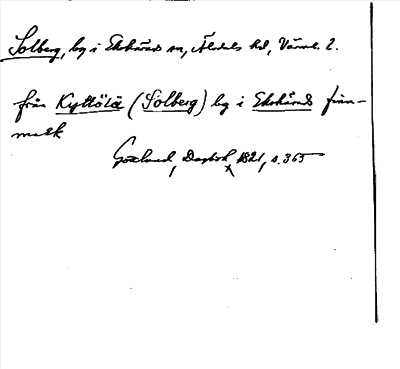 Solberg, by i Ekshärads sn, Älvdals hd, Värml. l.
från Kyttölä (Solberg) by i Ekshärads finn-
mark
Gottlund, Dagbok 1821, s. 365